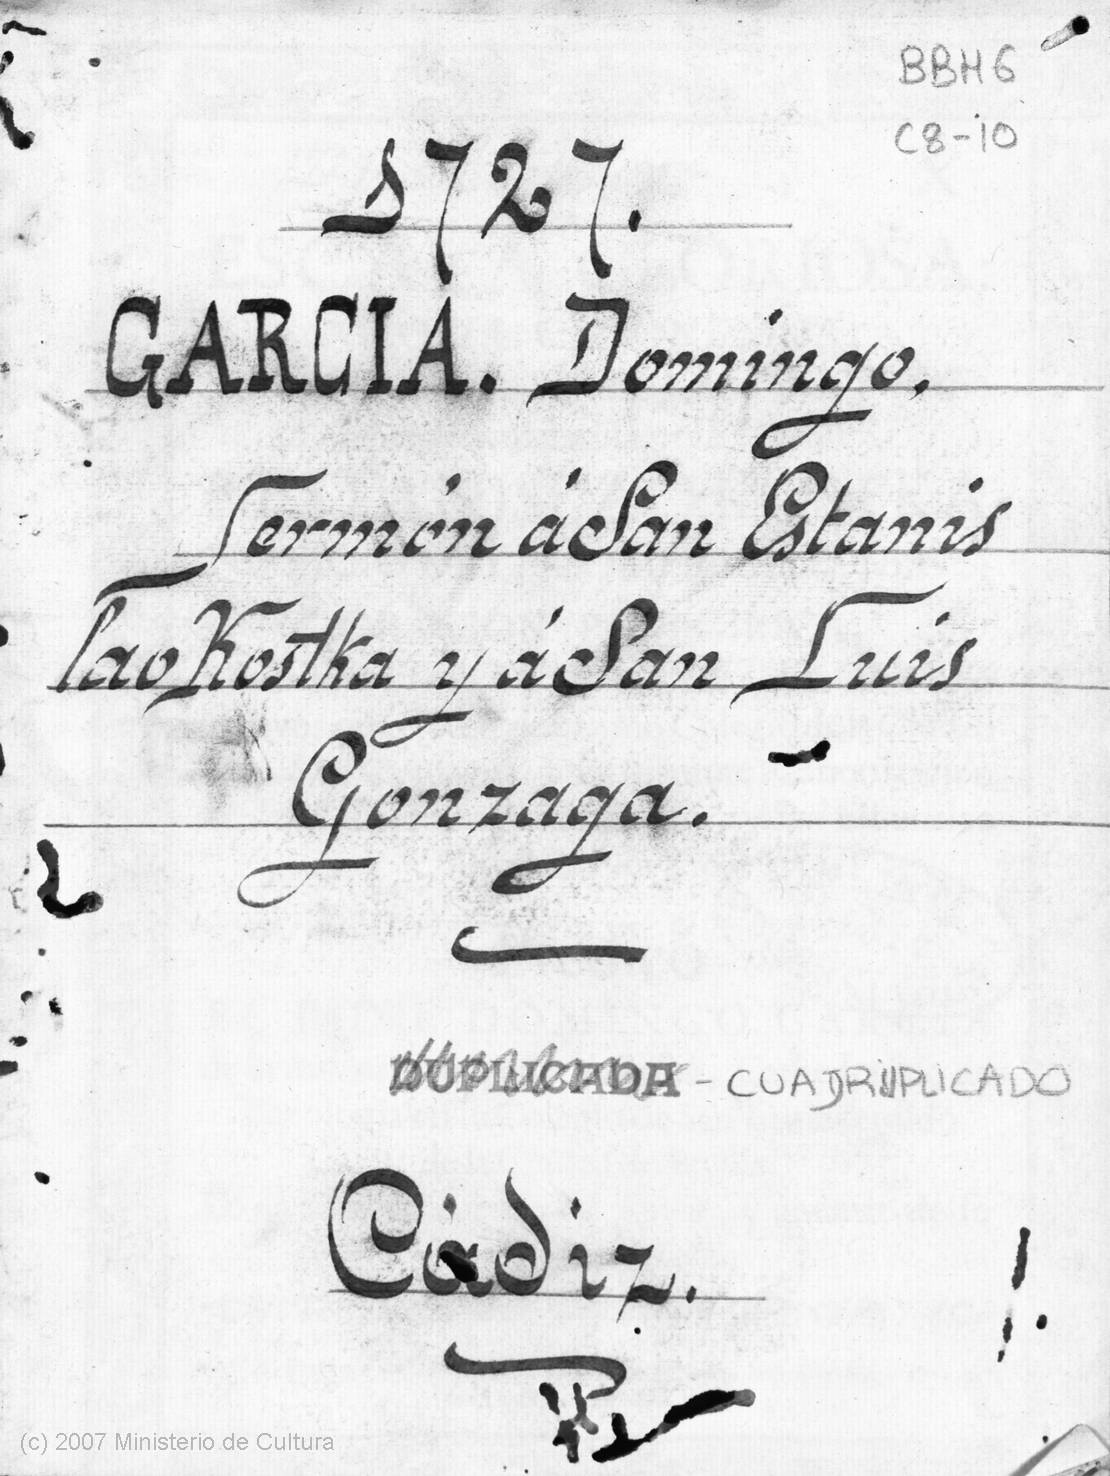 BBH6
C8-10
1727.
GARCIA. Domingo,
Sermón á San Estanis
lao Kostka y á San Luis
Gonzaga.
DUPLICADA - CUADRIIPLICADO
Cádiz.
(c) 2007 Ministerio de Cultura